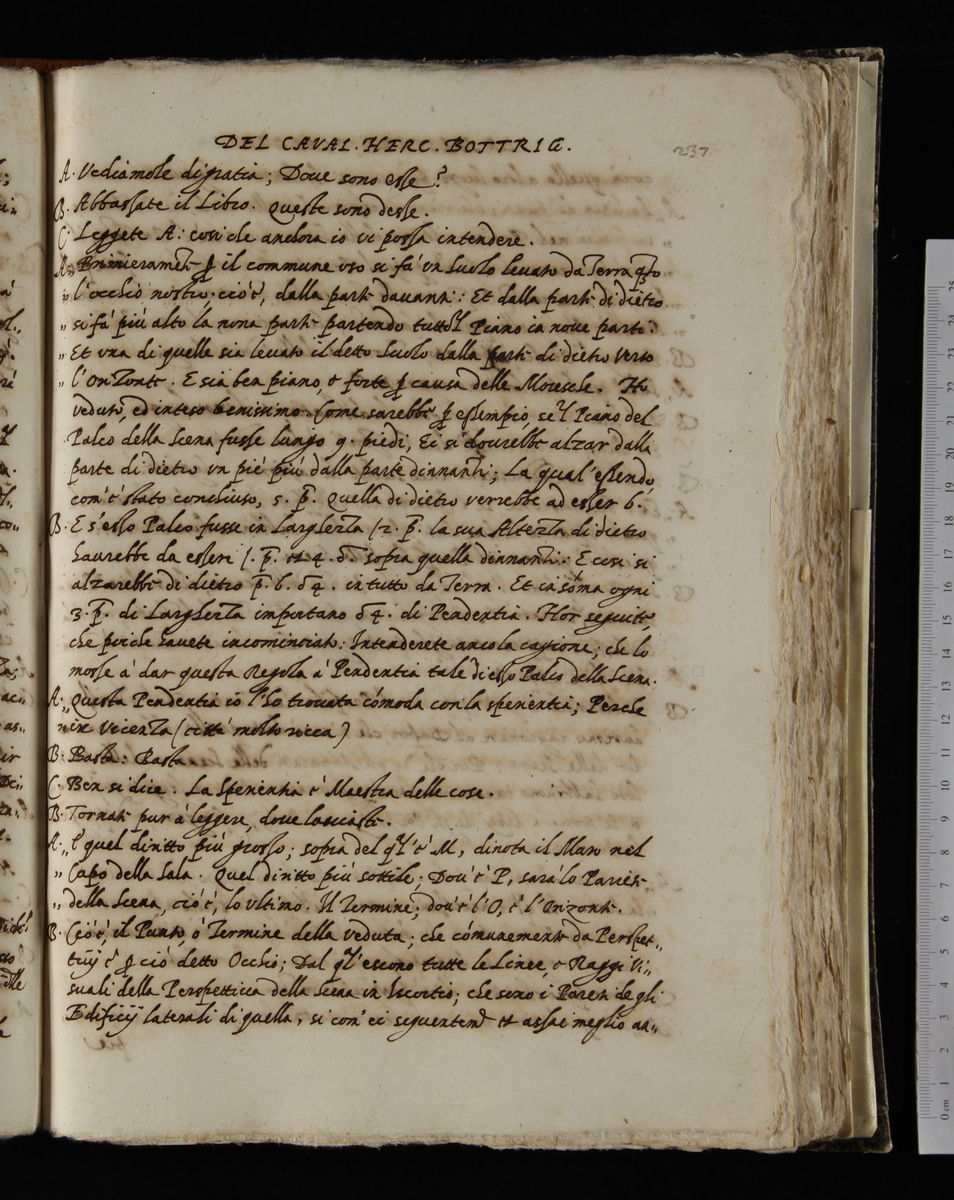 DEL CAVAL. HERC. BOTTRIG.
237
A. Vediamole di gratia; Doue sono esse?
B. Abbassate il Libro. Queste sono desse.
C. Leggete A: cosi che anchora io vi possa intendere.
A. „ Primieramente ꝑ il commune vso si fà vn suolo leuato da Terra qto
„ l'occhio nostro, cio è, dalla parte dauanti: Et dalla parte di dietro
„ si fà più alto la nona parte partendo tutto 'l Piano in noue parti:
„ Et vna di quelle sia leuato il detto suolo dalla parte di dietro verso
„ l'Orizonte. E sia ben piano, e forte ꝑ causa delle Moresche. Ho
veduto, ed inteso benissimo. Come sarebbe ꝑ essempio, se 'l Piano del
Palco della Scena fusse lungo 9. piedi, Ei si dourebbe alzar dalla
parte di dietro vn piè più dalla parte dinnanti; La qual' essendo
com'è stato conchiuso, 5. p̄. Quella di dietro verrebbe ad esser 6.
B. E s'esso Palco fusse in Larghezza 12. p̄. la sua Altezza di dietro
haurebbe da essere 1. p̄. et 4. d̄. sopra quella dinnanti: E cosi si
alzarebbe di dietro p̄. 6. d̄ 4. in tutto da Terra. Et in somma ogni
3. p̄. di Larghezza importano d̄ 4. di Pendentia. Hor seguite,
che poiche hauete incominciato: Intenderete ancola cagione, che lo
mosse à dar questa Regola à Pendentia tale di esso Palco della Scena.
A. „ Questa Pendentia io l'ho trouata cómoda con la sperientia; Perche
„ in Vicenza (città molto ricca)
B. Basta: Basta.
C. Ben si dice. La Sperientia è Maestra delle cose.
B. Tornate pur à leggere, doue lasciaste.
A. „ E quel diritto più grosso; sopra del ql' è M, dinota il Muro nel
„ Capo della Sala. Quel diritto più sottile; Dou'è P, sarà lo Parete
„ della Scena, cio è, lo vltimo. Il Termine; dou'è l'O, è l'Orizonte.
B. Cio è, il Punto, ò Termine della veduta; che cómunemente da Perspet„
tiuij è ꝑ ciò detto Occhio; Dal ql' escono tutte le Linee, e Raggi Vi„
suali della Perspettiua della Scena in Iscortio; che sono i Pareti de gli
Edificij laterali di quella, si com' ei seguentem̄. et assai meglio an„